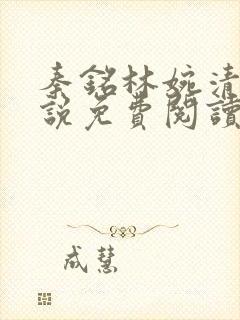 秦銘林婉清
說免費閱讀
成慧